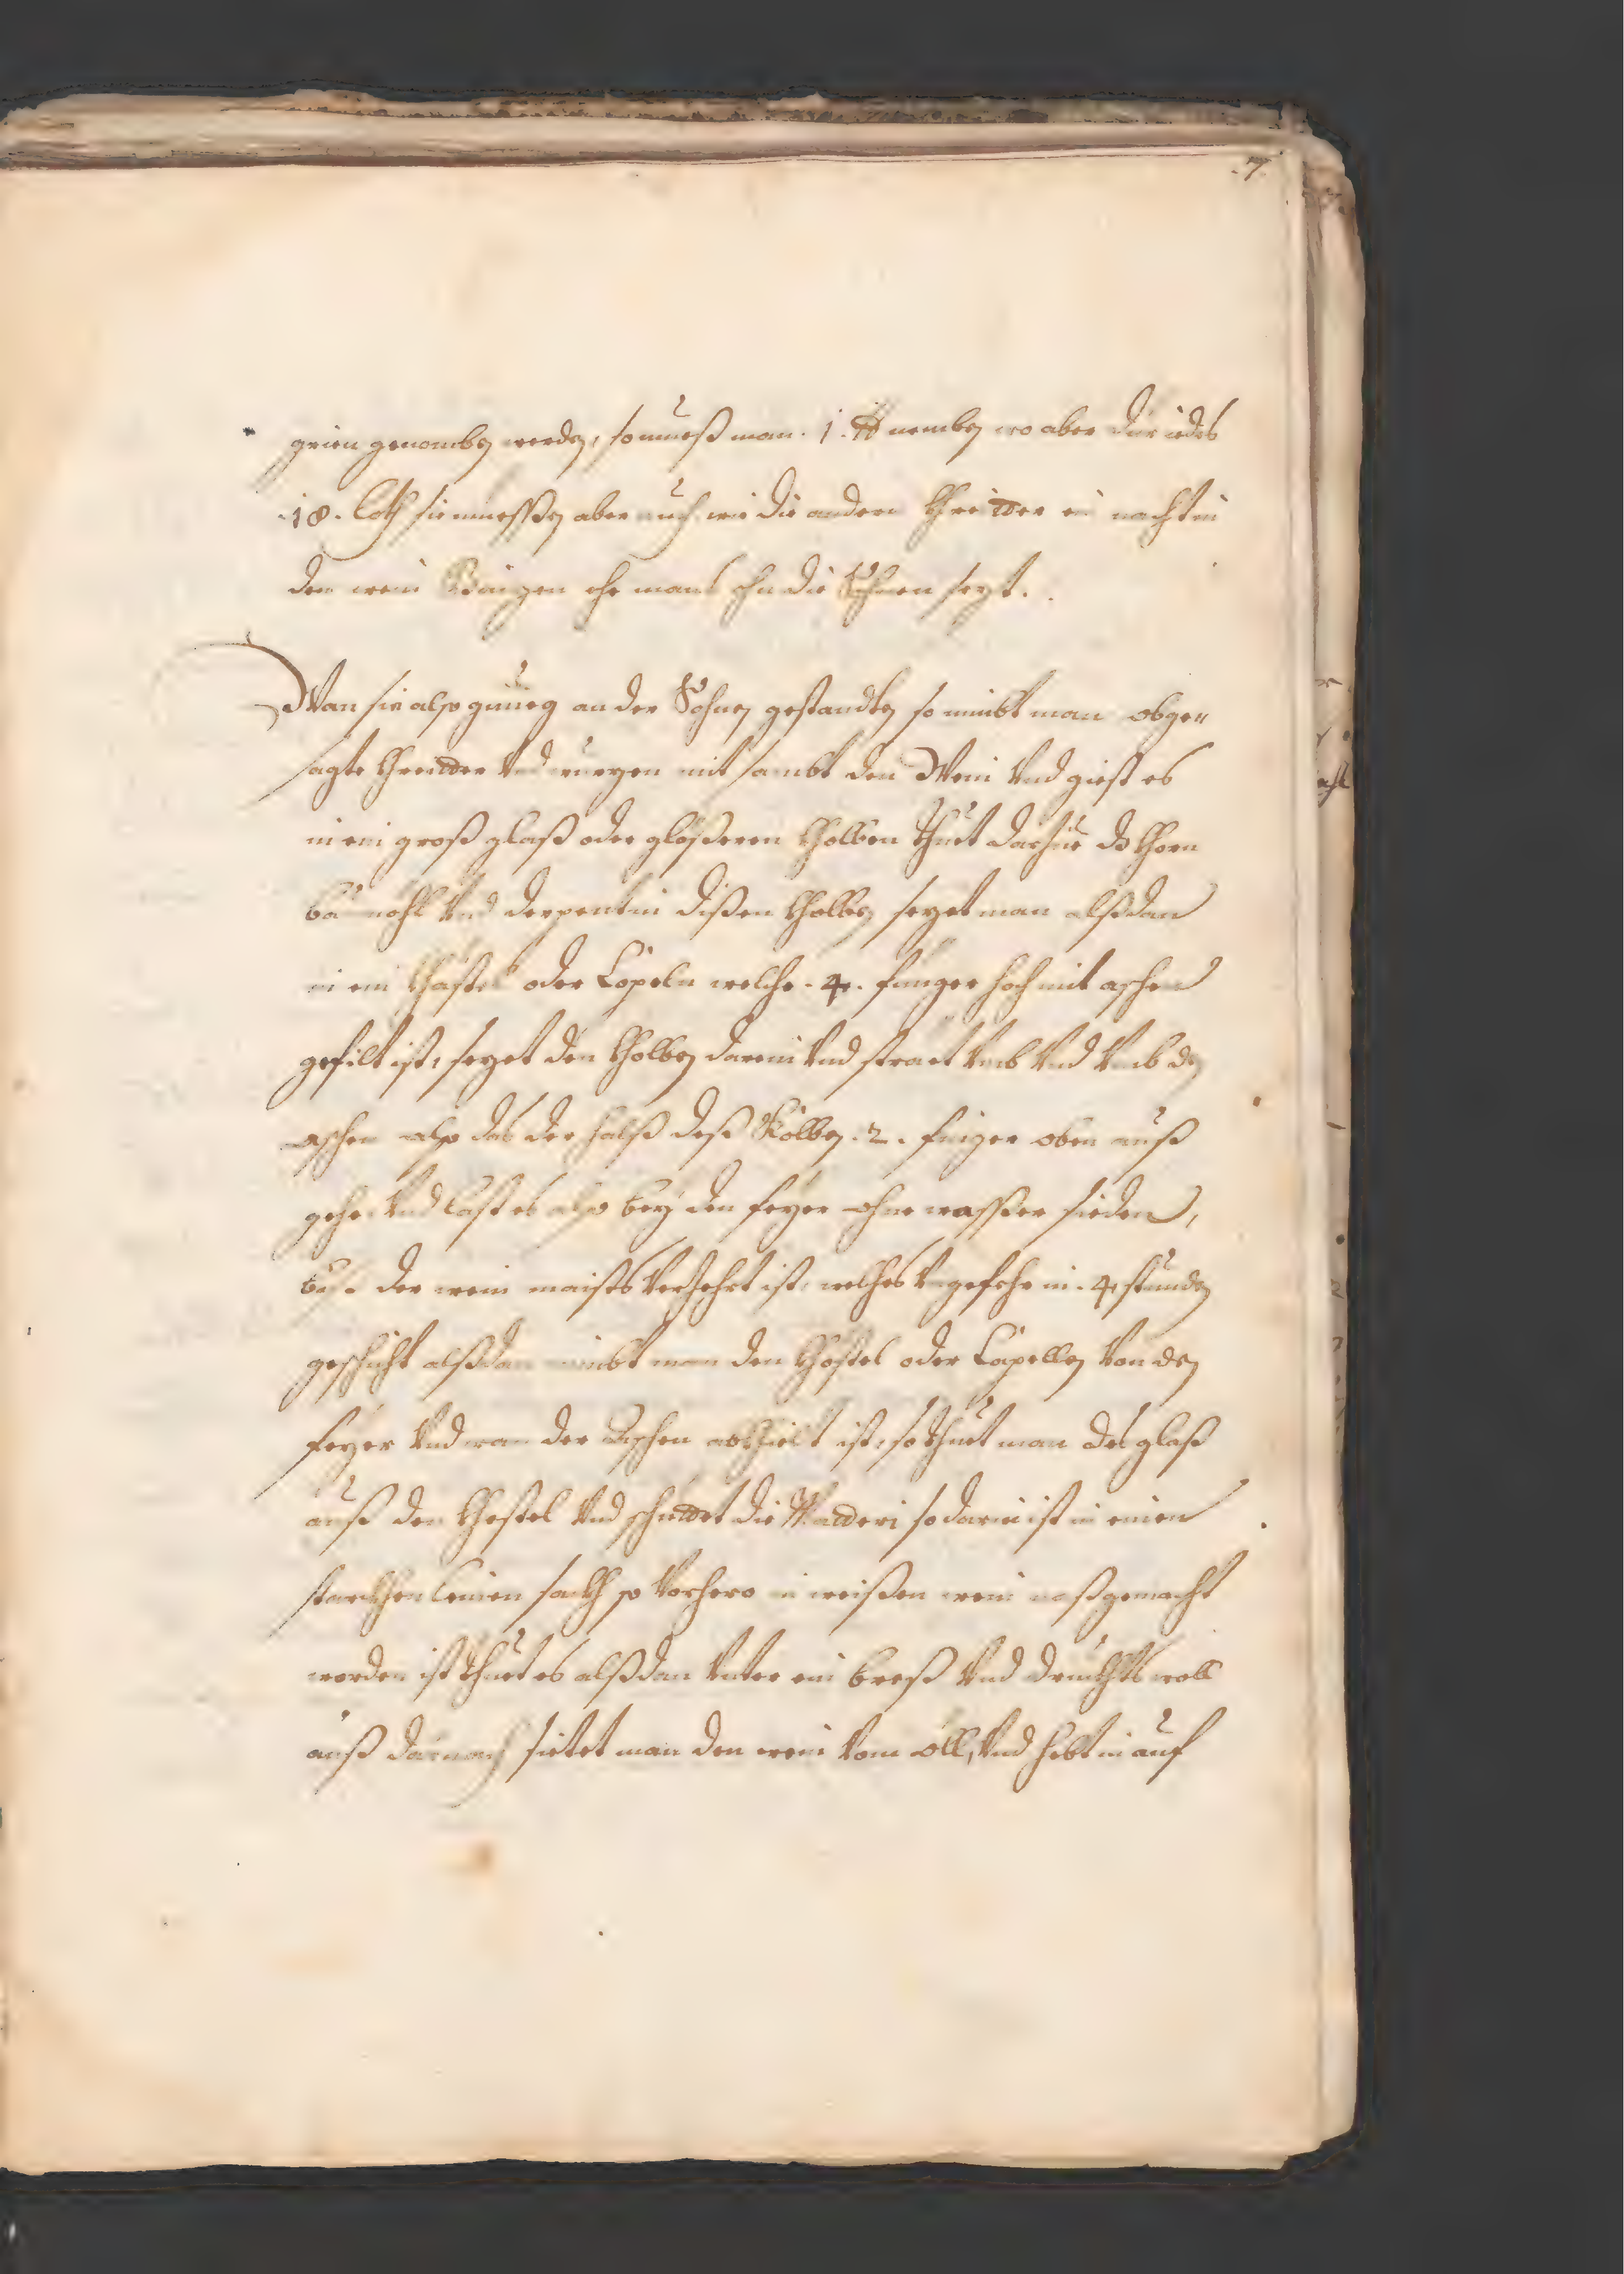 .7.
grien genomben werden, so muess man . 1 . ℔ nemben wo aber dür iedes
.18. loth sie muessen aber auch wie die andern Khreitter ein nacht in
den wein baizen ehe mans ahn die Sohnen sezt.
Wan sie also genueg an der Sohnen gestandten so nimbt man obge„
sagte Khreitter Vnd wurzen mit sambt den Wein Vnd giest es
in ein groß glaß oder gläßeren Kholben thuet darzue dz Khorn
baumöhl Vnd derpentin dißen Kholben sezet man alßdan
in ein Khästel oder Capeln welche . 4 . finger hoch mit aschen
gefilt ist, sezet den Kholben darein Vnd straet Vmb Vnd Vmb den
aschen also das der halß deß Kolben . 2 . finger oben auß
gehe, Vnd last es also bey den feyer ohne wasser sieden,
biß der wein maists Verzehrt ist, welches Vngefehr in . 4 stunden
geschicht alßdan nimbt man den Khästel oder Capellen Von den
feyer Vnd wan der Aschen abkhielt ist, so thuet man das glaß
auß den Khestel Vnd schüttet die Matteri so darin ist in einen
starckhen leinen sackh so Vorhero in weißen wein naß gemacht
worden ist thuet es alßdan Vnter ein breß Vnd druckhts woll
auß darnach sietet man den wein Vom öll, Vnd hebt in auf